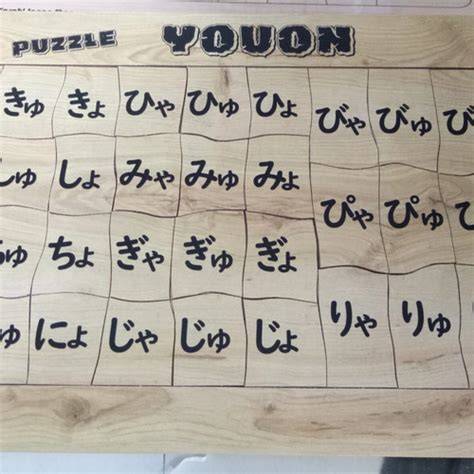 PUZZLE YOUON
きゅ きょ ひゃ ひゅ ひょ びゃ びゅ
しゅ しょ みゃ みゅ みょ ぴゃ ぴゅ
ちゅ ちょ ぎゃ ぎゅ ぎょ
にょ じゃ じゅ じょ りゃ りゅ